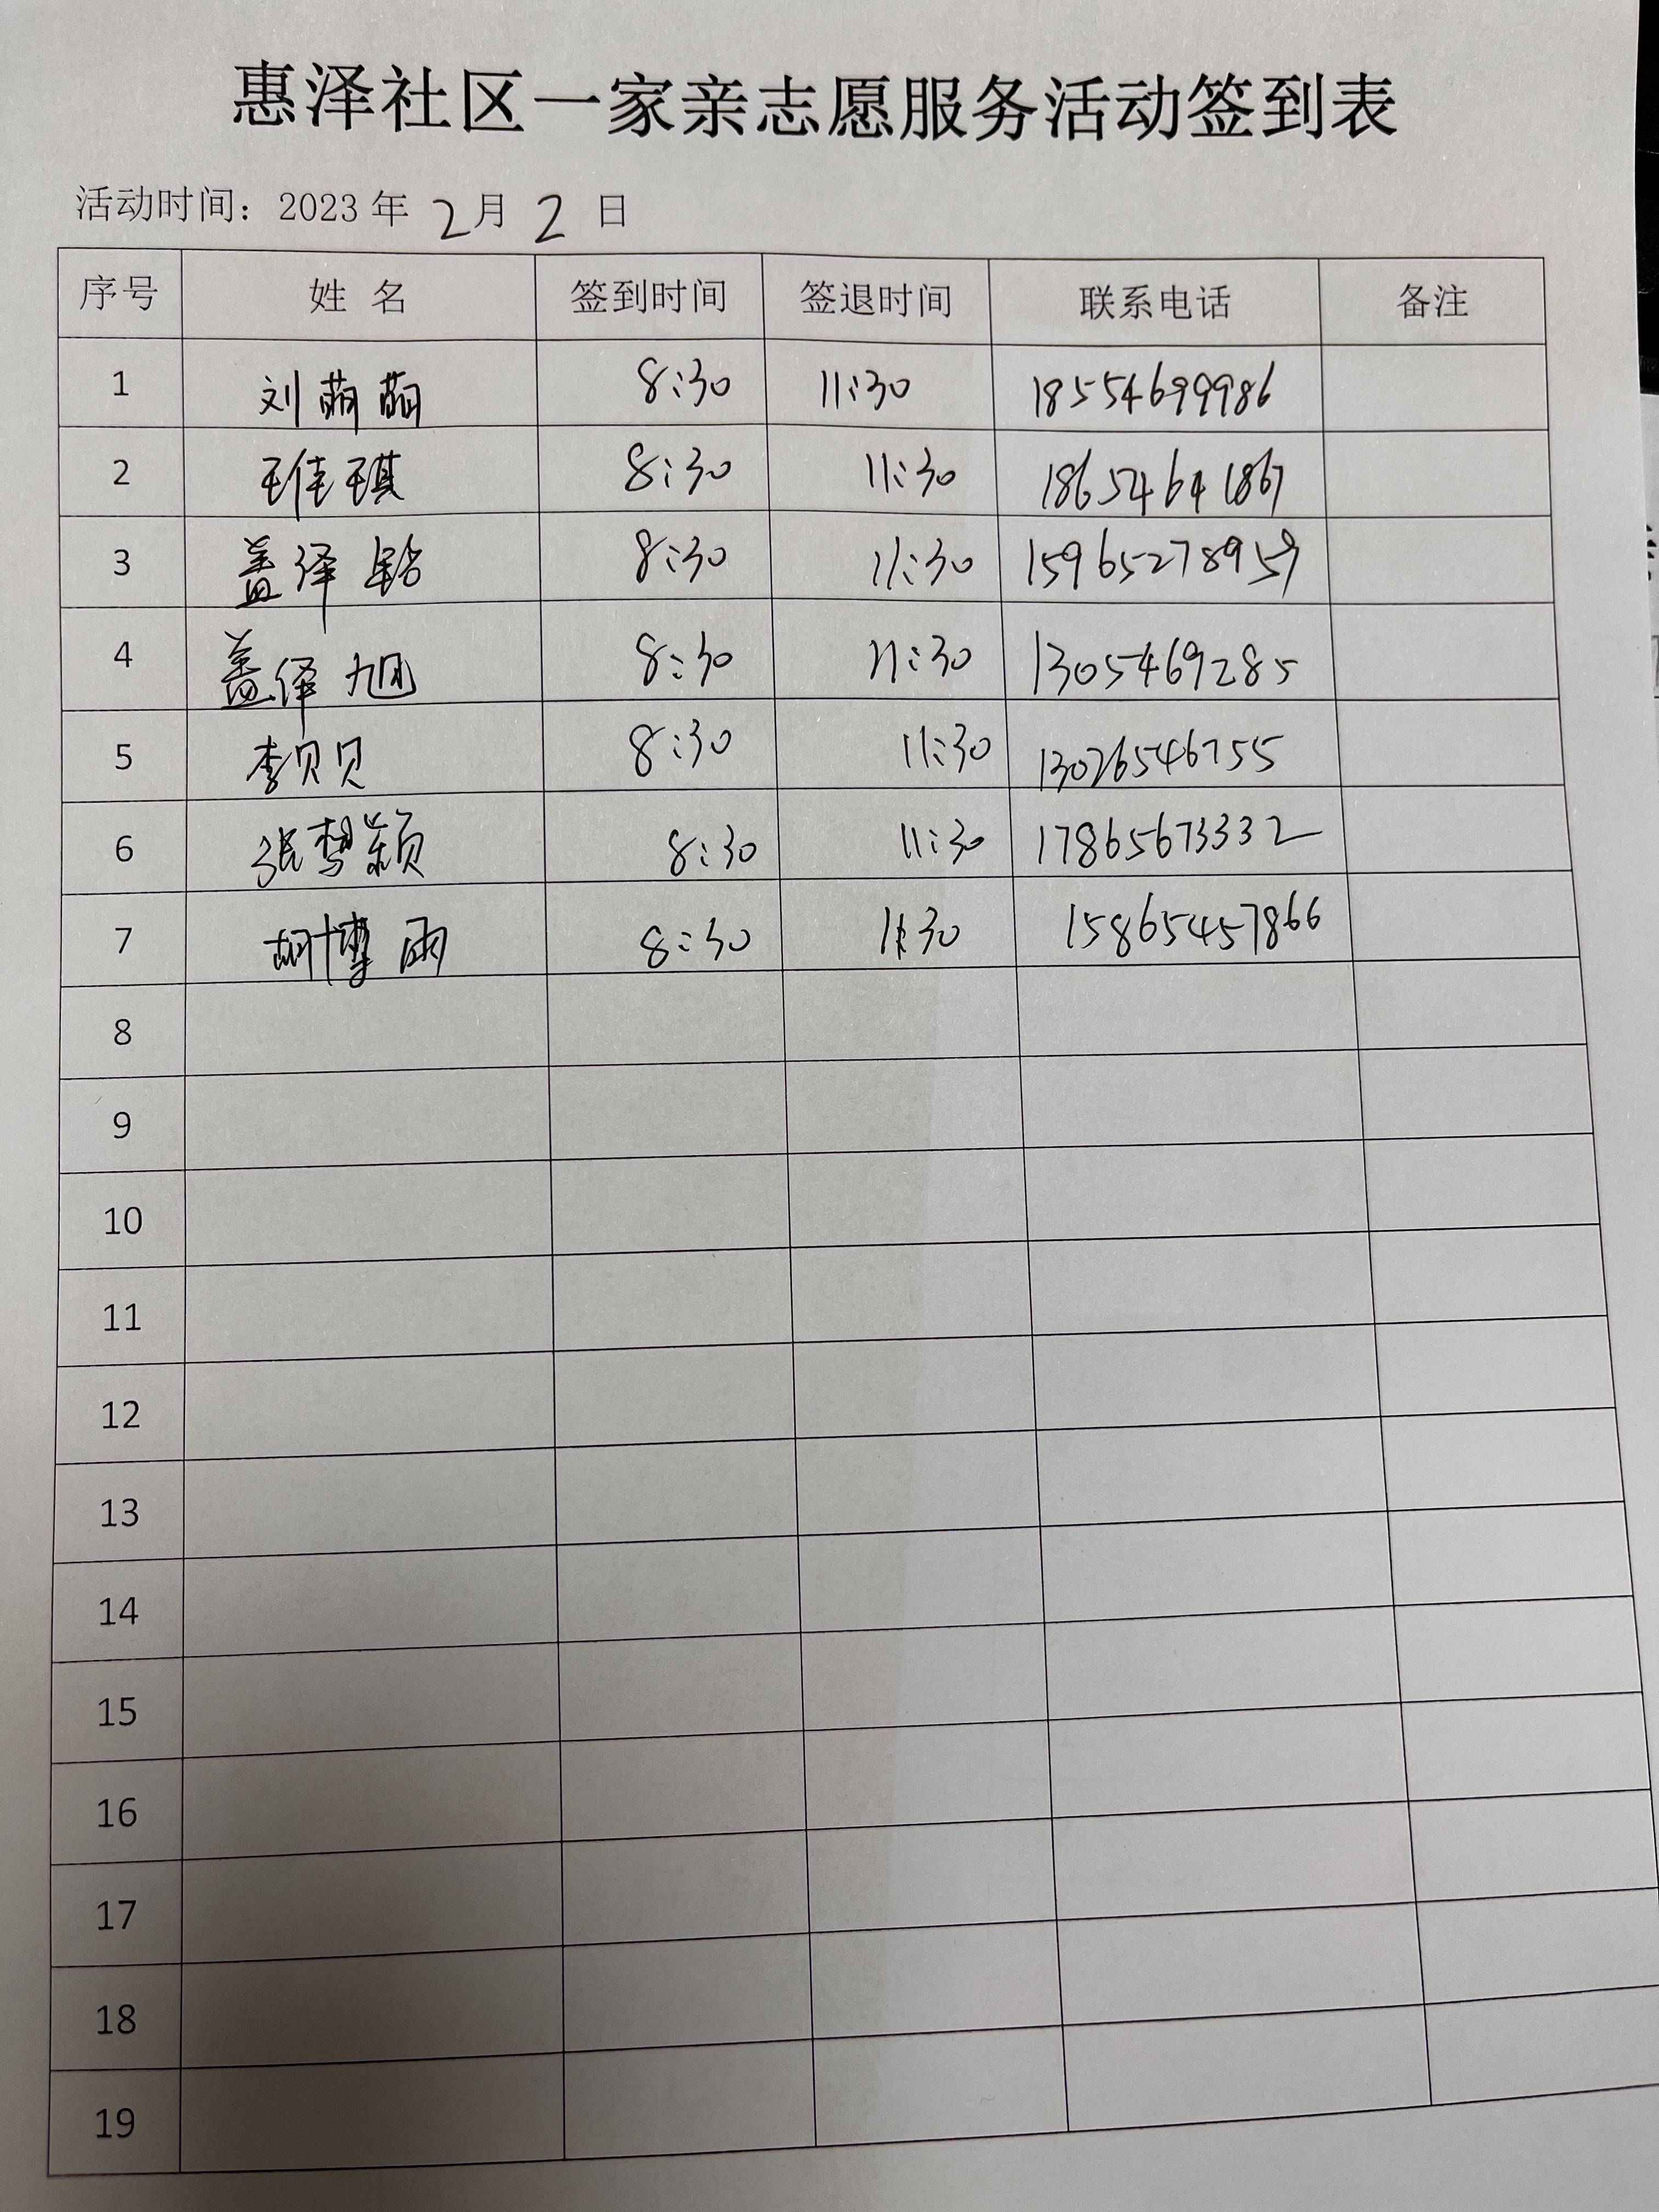 惠泽社区一家亲志愿服务活动签到表
活动时间：2023 年 2 月 2 日
序号 姓 名 签到时间 签退时间 联系电话 备注
1 刘萌萌 8:30 11:30 18554699986
2 王佳琪 8:30 11:30 186524641867
3 盖泽铭 8:30 11:30 15965278959
4 盖泽旭 8:30 11:30 1305469285
5 李贝贝 8:30 11:30 13026546755
6 张梦颖 8:30 11:30 17865673332
7 胡博雨 8:30 11:30 15865457866
8
9
10
11
12
13
14
15
16
17
18
19